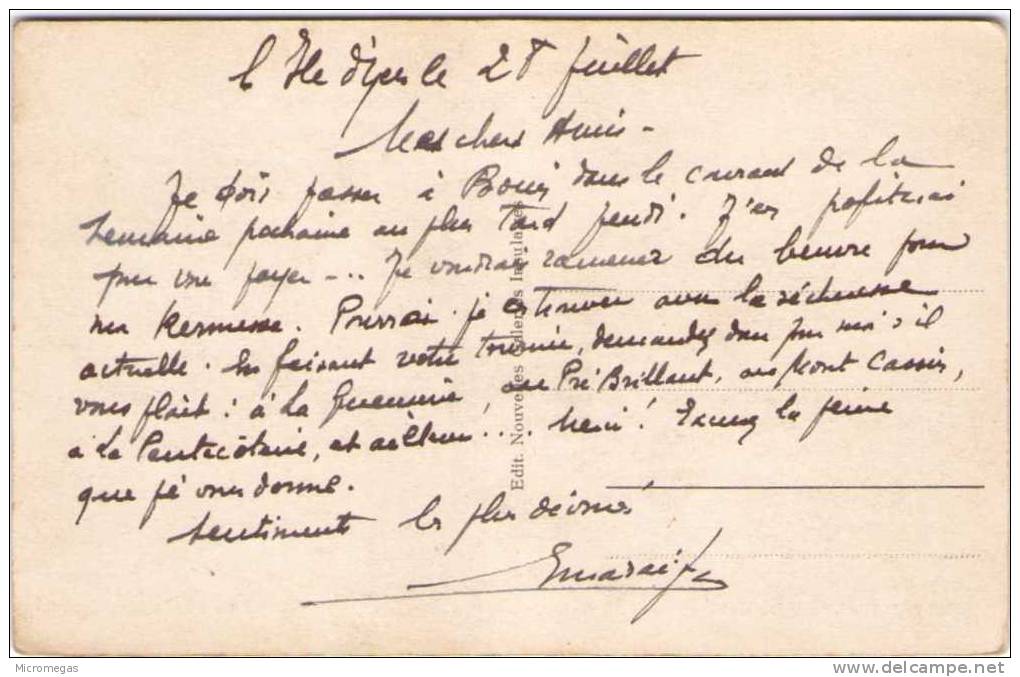 28 Juillet
Mes chers Amis -
Je dois passer à dans le courant de la
semaine prochaine au plus tard jeudi. J'en profiterai
pour vous payer -... Je voudrais ramener du beurre pour
ma Kermesse. Pourrai-je en trouver avec la sécheresse
actuelle. En faisant votre tournée, demandez donc pour moi s'il
vous plait: à la, au Pré Brillant, au Mont Cassis,
à la, et ailleurs.... Merci! Excusez la peine
que je vous donne.
Sentiments les plus dévoués
Edit. Nouvelles Insulaires
Micromegas
www.delcampe.net